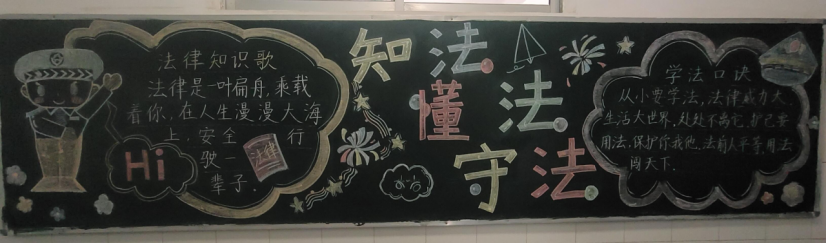 法律知识歌
法律是一叶扁舟,乘载
着你,在人生漫漫大海
上,安全 行
驶一
辈子.
法律
Hi
知法
懂法
守法
学法口诀
从小要学法,法律威力大.
生活大世界,处处不离它.护己要
用法,保护你我他,法前人平等,用法
闯天下.